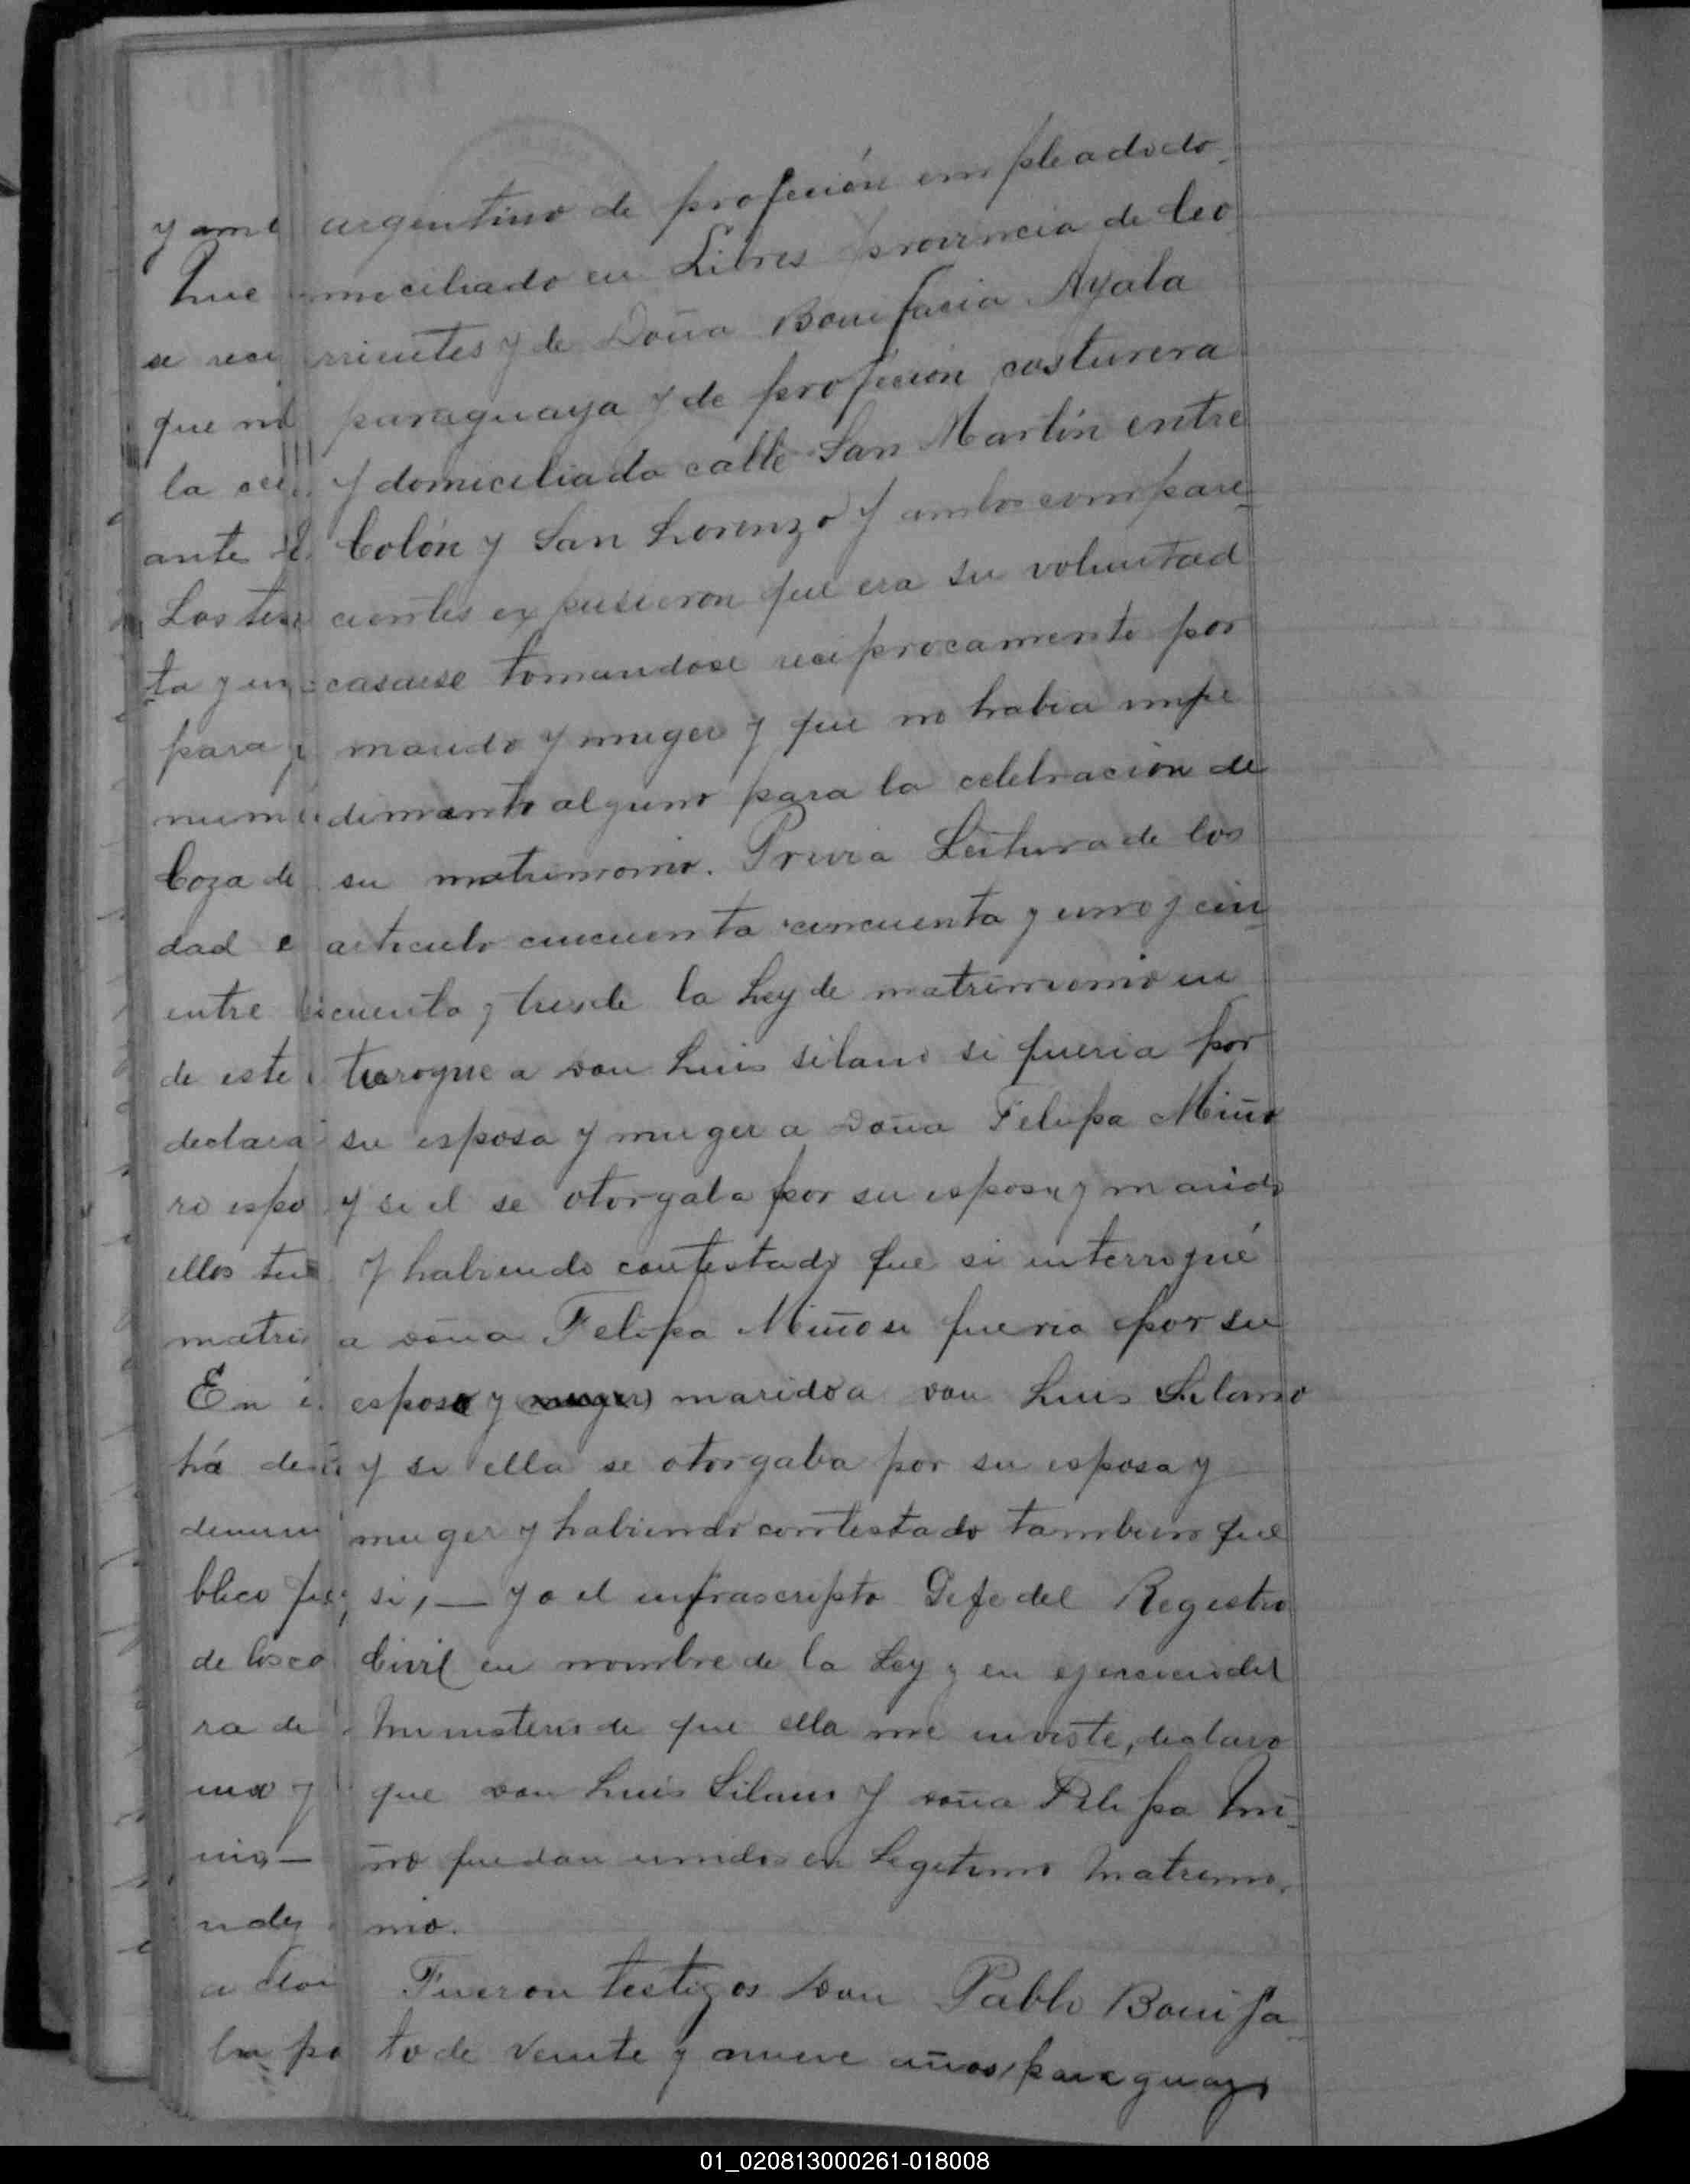 argentino de profeción empleado do
miciliado en Libres provincia de Co
rrientes y de Doña Bonifacia Ayala
paraguaya y de profeción costurera
y domiciliada calle San Martín entre
Colón y San Lorenzo y ambos compare-
cientes expusieron que era su voluntad
casarse tomandose reciprocamente por
marido y muger y que no habia impe
dimento alguno para la celebracion de
su matrimonio. Previa Lectura de los
articulo cincuenta cincuenta y uno y cin-
cuenta y tres de la Ley de matrimonio in
terroque a don Luis Silano si queria por
su esposa y muger a Doña Felipa Miño
y si el se otorgaba por su esposo y marido
y habiendo contestado que si interrogué
a doña Felipa Miño si queria por su
esposo y (muger) marido a don Luis Silano
y si ella se otorgaba por su esposa y
muger y habiendo contestado tambien que
si, — yo el infrascripto Gefe del Registro
Civil en nombre de la Ley y en ejercicio del
Ministerio de que ella me inviste, declaro
que don Luis Silano y doña Felipa Mi-
ño quedan unidos en Legitimo Matrimo-
nio.
Fueron testigos Don Pablo Bonifa-
to de veinte y nueve años, paraguayo
y am
que
se reci
que
la
ante
Los tes
ta y en
para
Coza de
dad
entre
de este
declara
ro espo
ellos
matri
En
há de
blico
de los co
ra de
y
a don
01_020813000261-018008